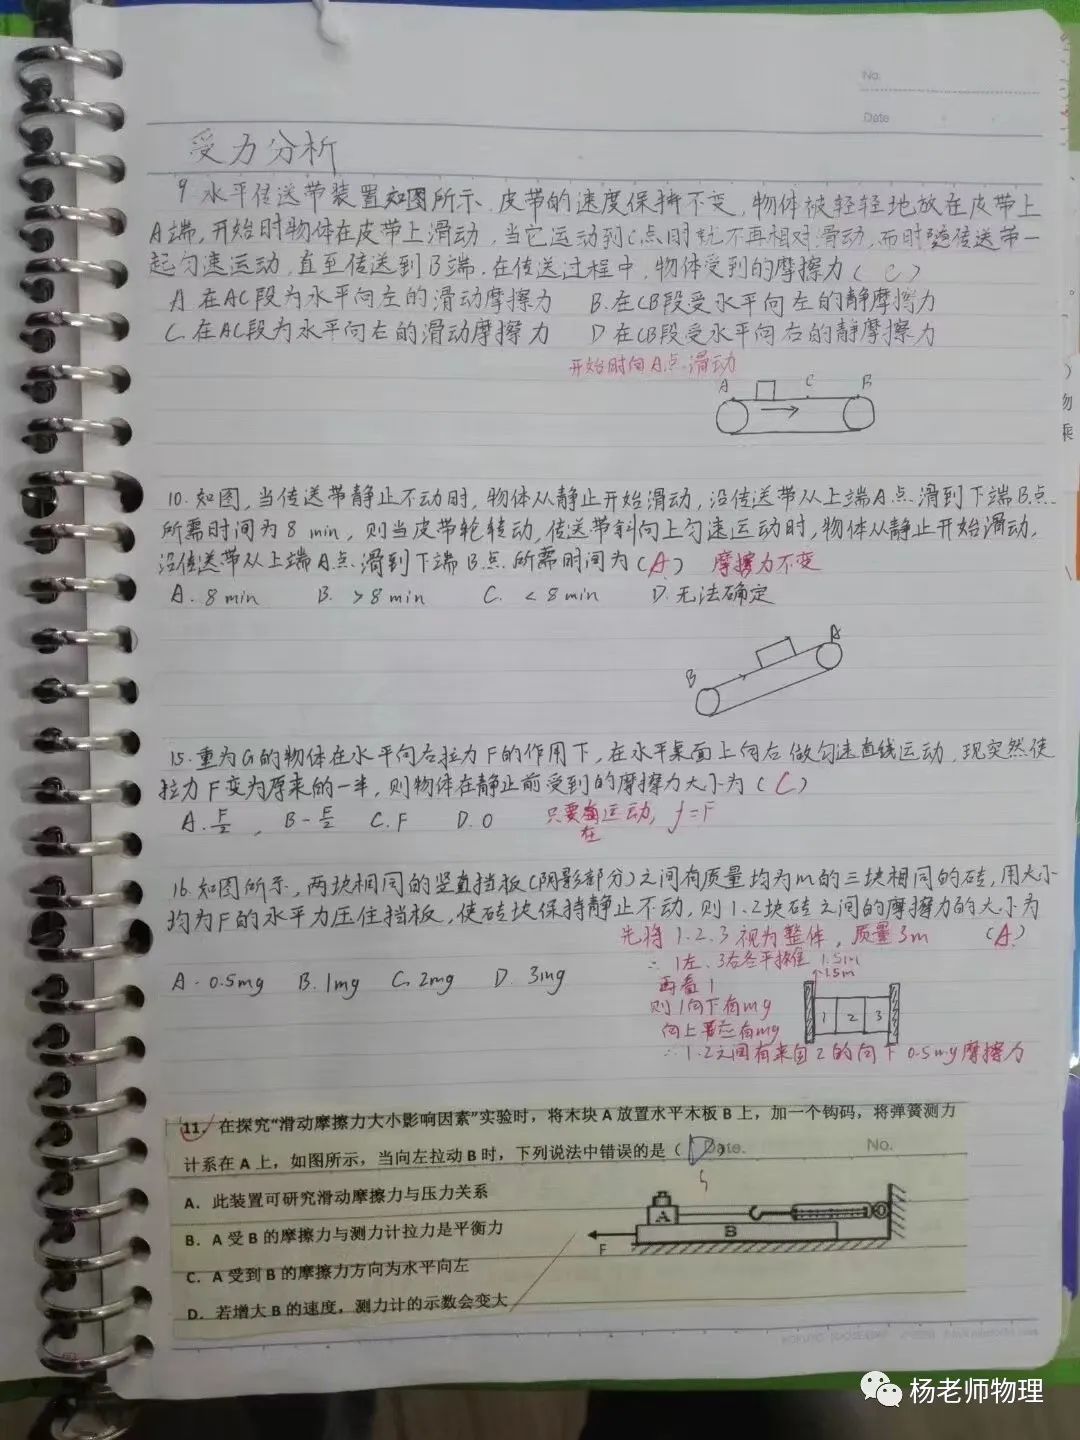 No.
Date
受力分析
9 水平传送带装置如图所示.皮带的速度保持不变,物体被轻轻地放在皮带上
A端,开始时物体在皮带上滑动,当它运动到C点时就不再相对滑动,而时随传送带一
起匀速运动,直至传送到B端.在传送过程中,物体受到的摩擦力(C)
A.在AC段为水平向左的滑动摩擦力 B.在CB段受水平向左的静摩擦力
C.在AC段为水平向右的滑动摩擦力 D在CB段受水平向右的静摩擦力
开始时向A点滑动
A C B
10.如图,当传送带静止不动时,物体从静止开始滑动,沿传送带从上端A点滑到下端B点
所需时间为8min,则当皮带轮转动,传送带斜向上匀速运动时,物体从静止开始滑动,
沿传送带从上端A点滑到下端B点所需时间为(A) 摩擦力不变
A.8min B.>8min C.<8min D.无法确定
A
B
15.重为G的物体在水平向右拉力F的作用下,在水平桌面上向右做匀速直线运动,现突然使
拉力F变为原来的一半,则物体在静止前受到的摩擦力大小为(C)
A.F/2, B-F/2 C.F D.0 只要在运动,f=F
16.如图所示,两块相同的竖直挡板(阴影部分)之间有质量均为m的三块相同的砖,用大小
均为F的水平力压住挡板,使砖块保持静止不动,则1.2块砖之间的摩擦力的大小为
先将1.2.3视为整体,质量3m (A)
∴1左、3右各平摊住1.5m
A.0.5mg B.1mg C.2mg D.3mg
↑1.5m
再看1
则1向下有mg
向上有mg
1 2 3
∴1.2之间有来自2的向下0.5mg摩擦力
11. 在探究“滑动摩擦力大小影响因素”实验时，将木块 A 放置水平木板 B 上，加一个钩码，将弹簧测力
计系在 A 上，如图所示，当向左拉动 B 时，下列说法中错误的是（D）
Date. No.
A．此装置可研究滑动摩擦力与压力关系
B．A 受 B 的摩擦力与测力计拉力是平衡力
C．A 受到 B 的摩擦力方向为水平向左
D．若增大 B 的速度，测力计的示数会变大
A
B
F
物
乘
杨老师物理